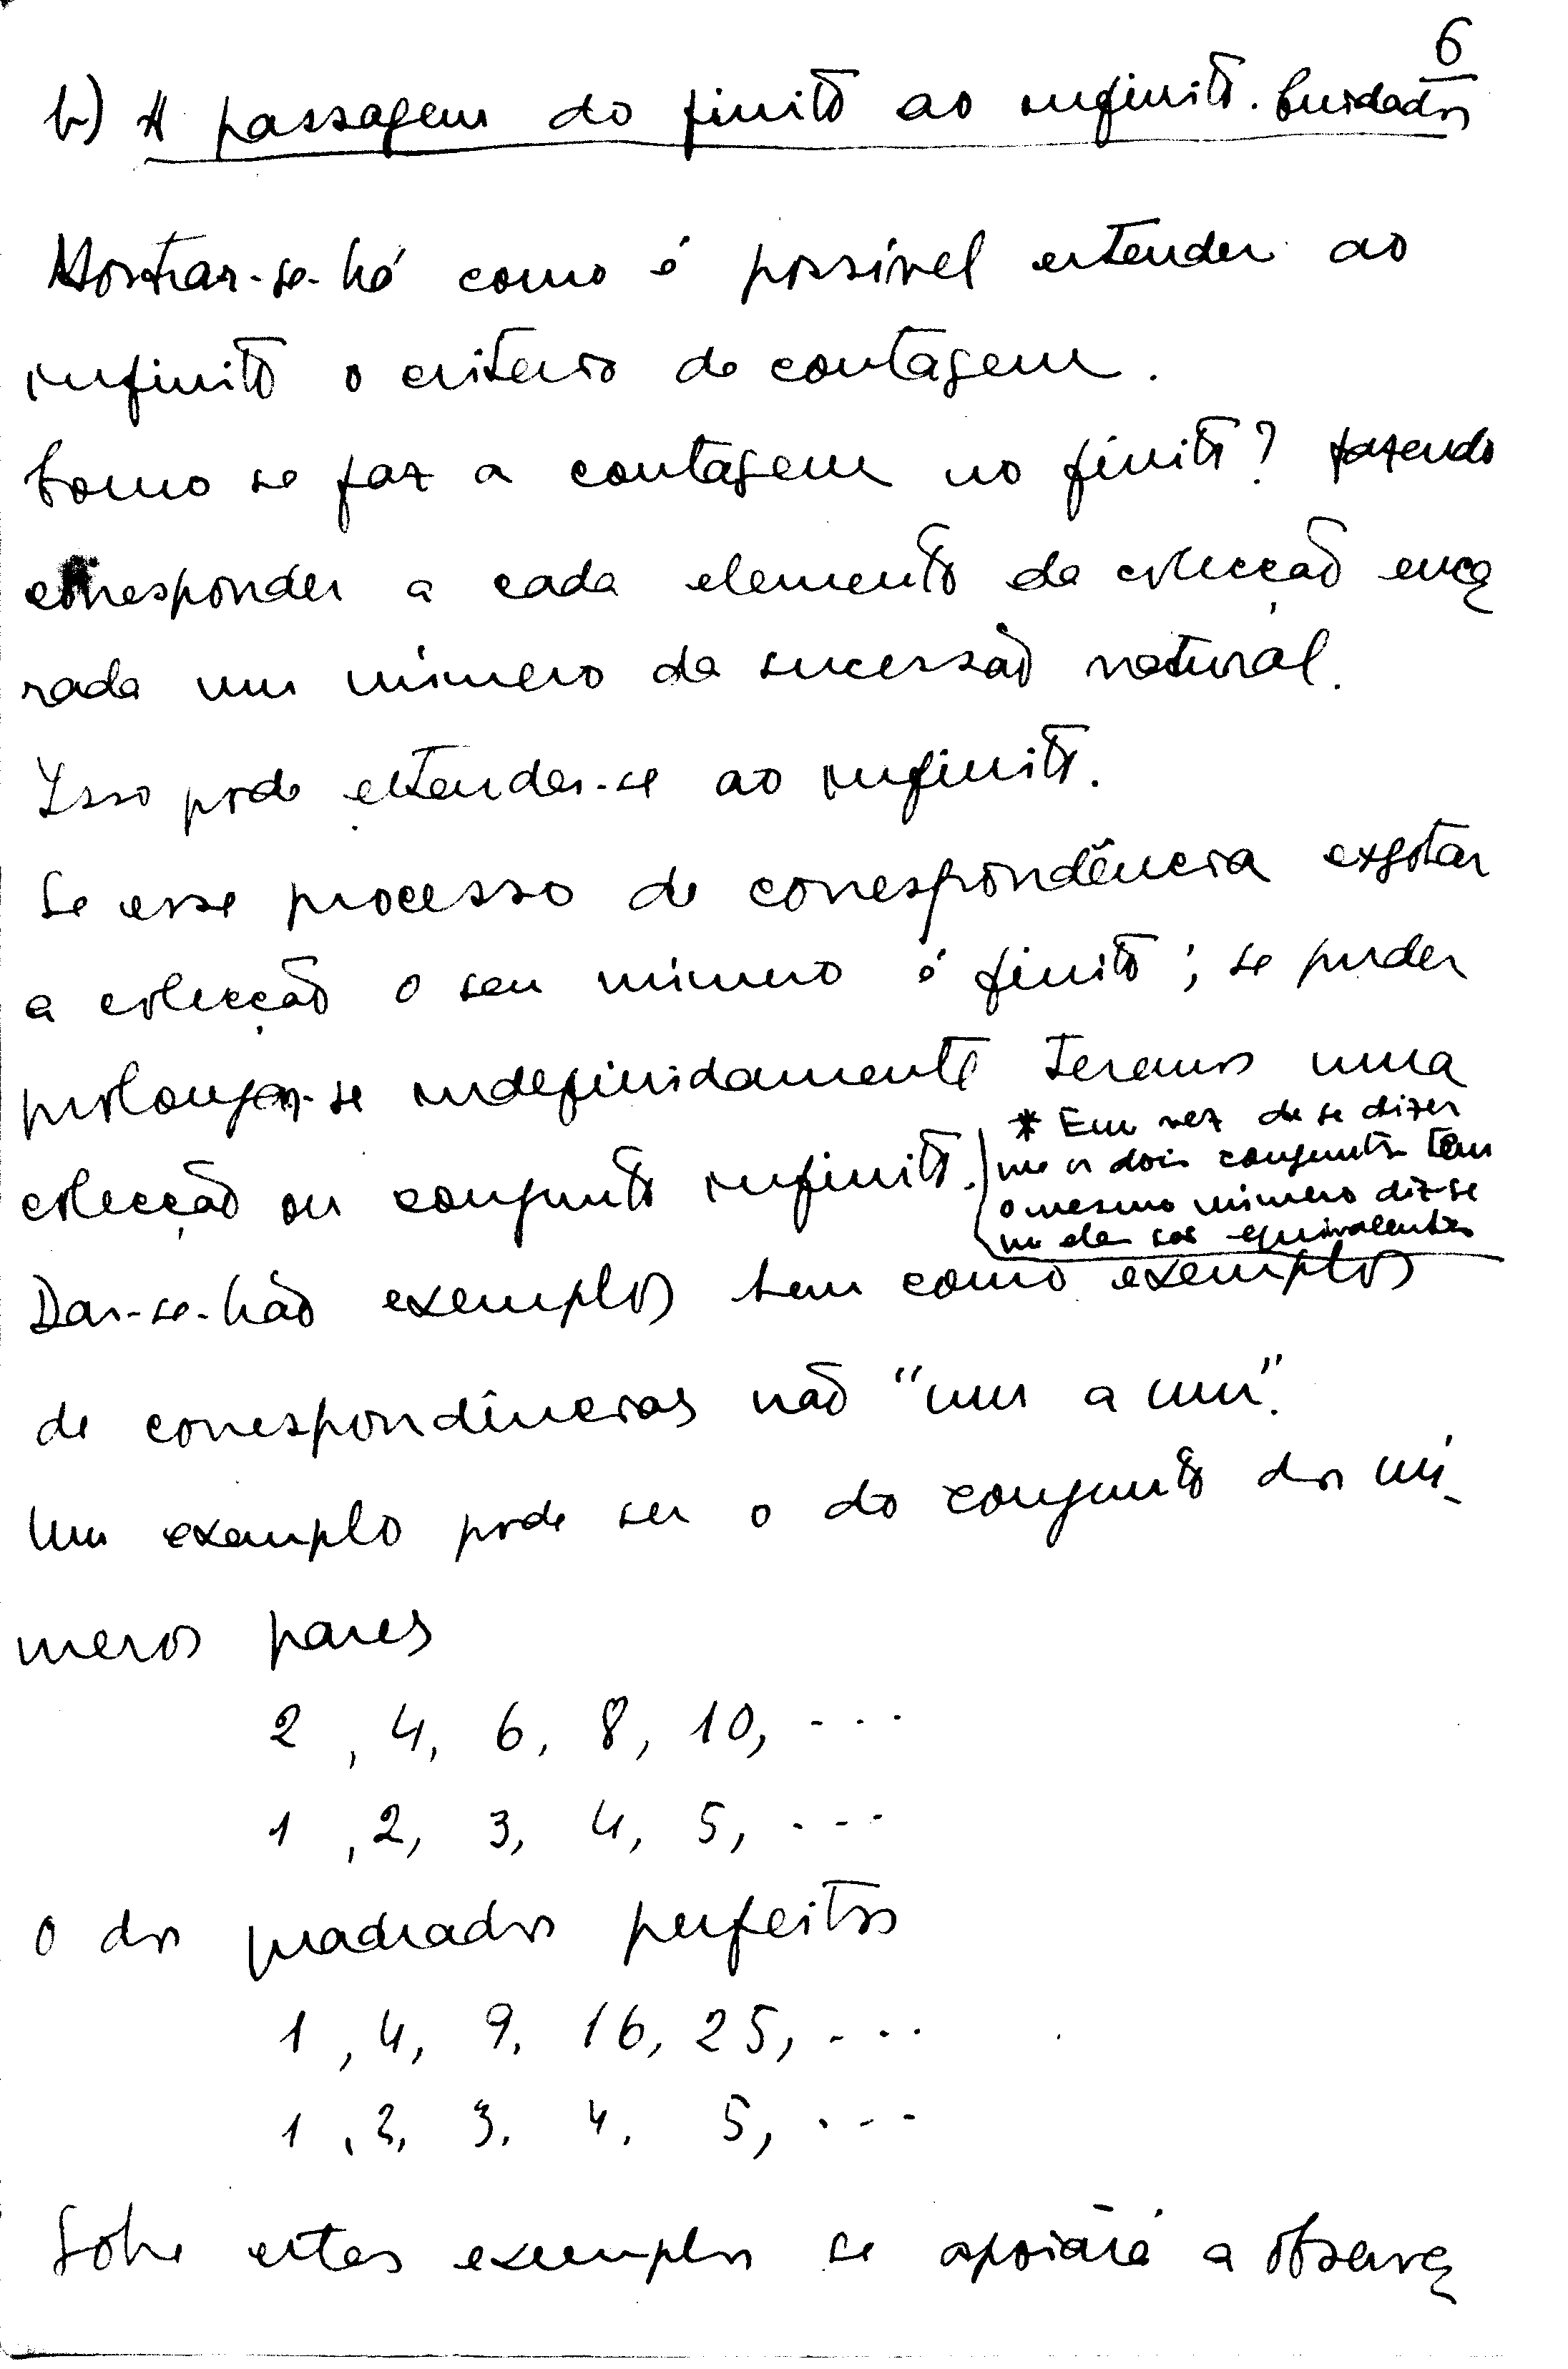 6
b) A passagem do finito ao infinito. Cuidados
Mostrar-se-há como é possível estender ao
infinito o criterio de contagem.
Como se faz a contagem no finito? fazendo
corresponder a cada elemento da colecção enca
rada um número da sucessão natural.
Isso pode estender-se ao infinito.
Se esse processo de correspondência esgotar
a colecção o seu número é finito; se puder
prolongar-se indefinidamente teremos uma
colecção ou conjunto infinito.
* Em vez de se dizer
que os dois conjuntos têm
o mesmo número diz-se
que eles são equivalentes
Dar-se-hão exemplos bem como exemplos
de correspondências não "um a um".
Um exemplo pode ser o do conjunto dos nú-
meros pares
2, 4, 6, 8, 10, ...
1, 2, 3, 4, 5, ...
o dos quadrados perfeitos
1, 4, 9, 16, 25, ...
1, 2, 3, 4, 5, ...
Sobre estes exemplos se apoiará a observa